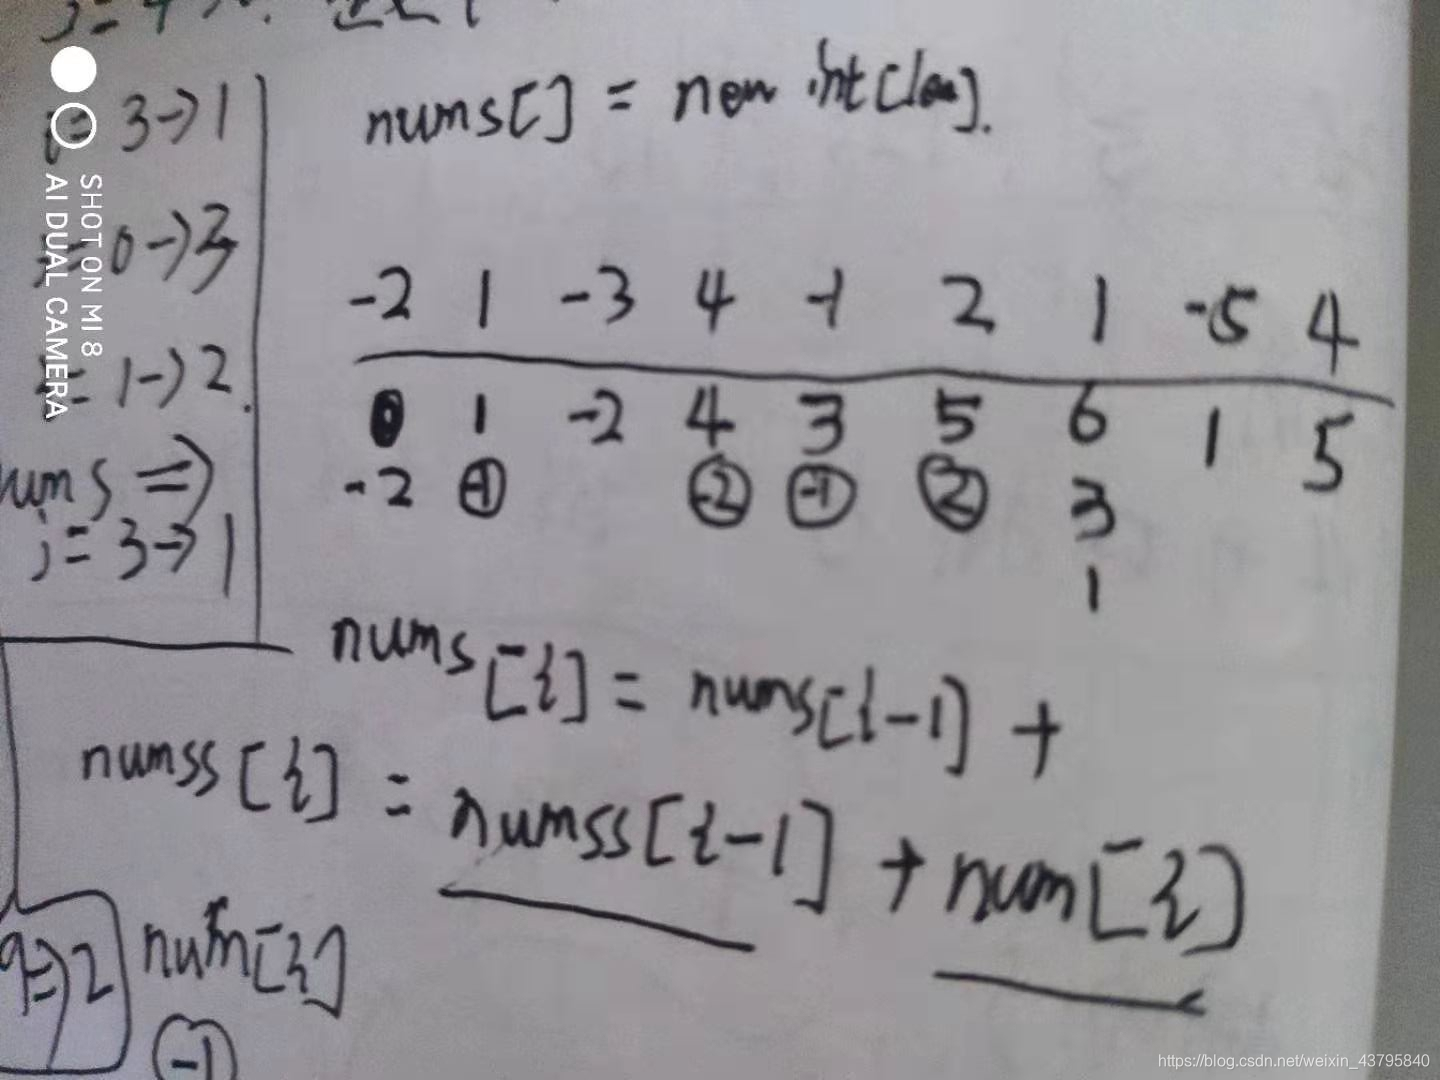 nums[] = new int[len].
3->1
0->3
= 1->2.
-2 1 -3 4 -1 2 1 -5 4
0 1 -2 4 3 5 6 1 5
-2 -1 -2 -1 2 3
1
nums =>
i= 3->1
nums[i] = nums[i-1] +
numss[i] = numss[i-1] + num[i]
=>2
num[i]
-1
SHOT ON MI 8
AI DUAL CAMERA
https://blog.csdn.net/weixin_43795840